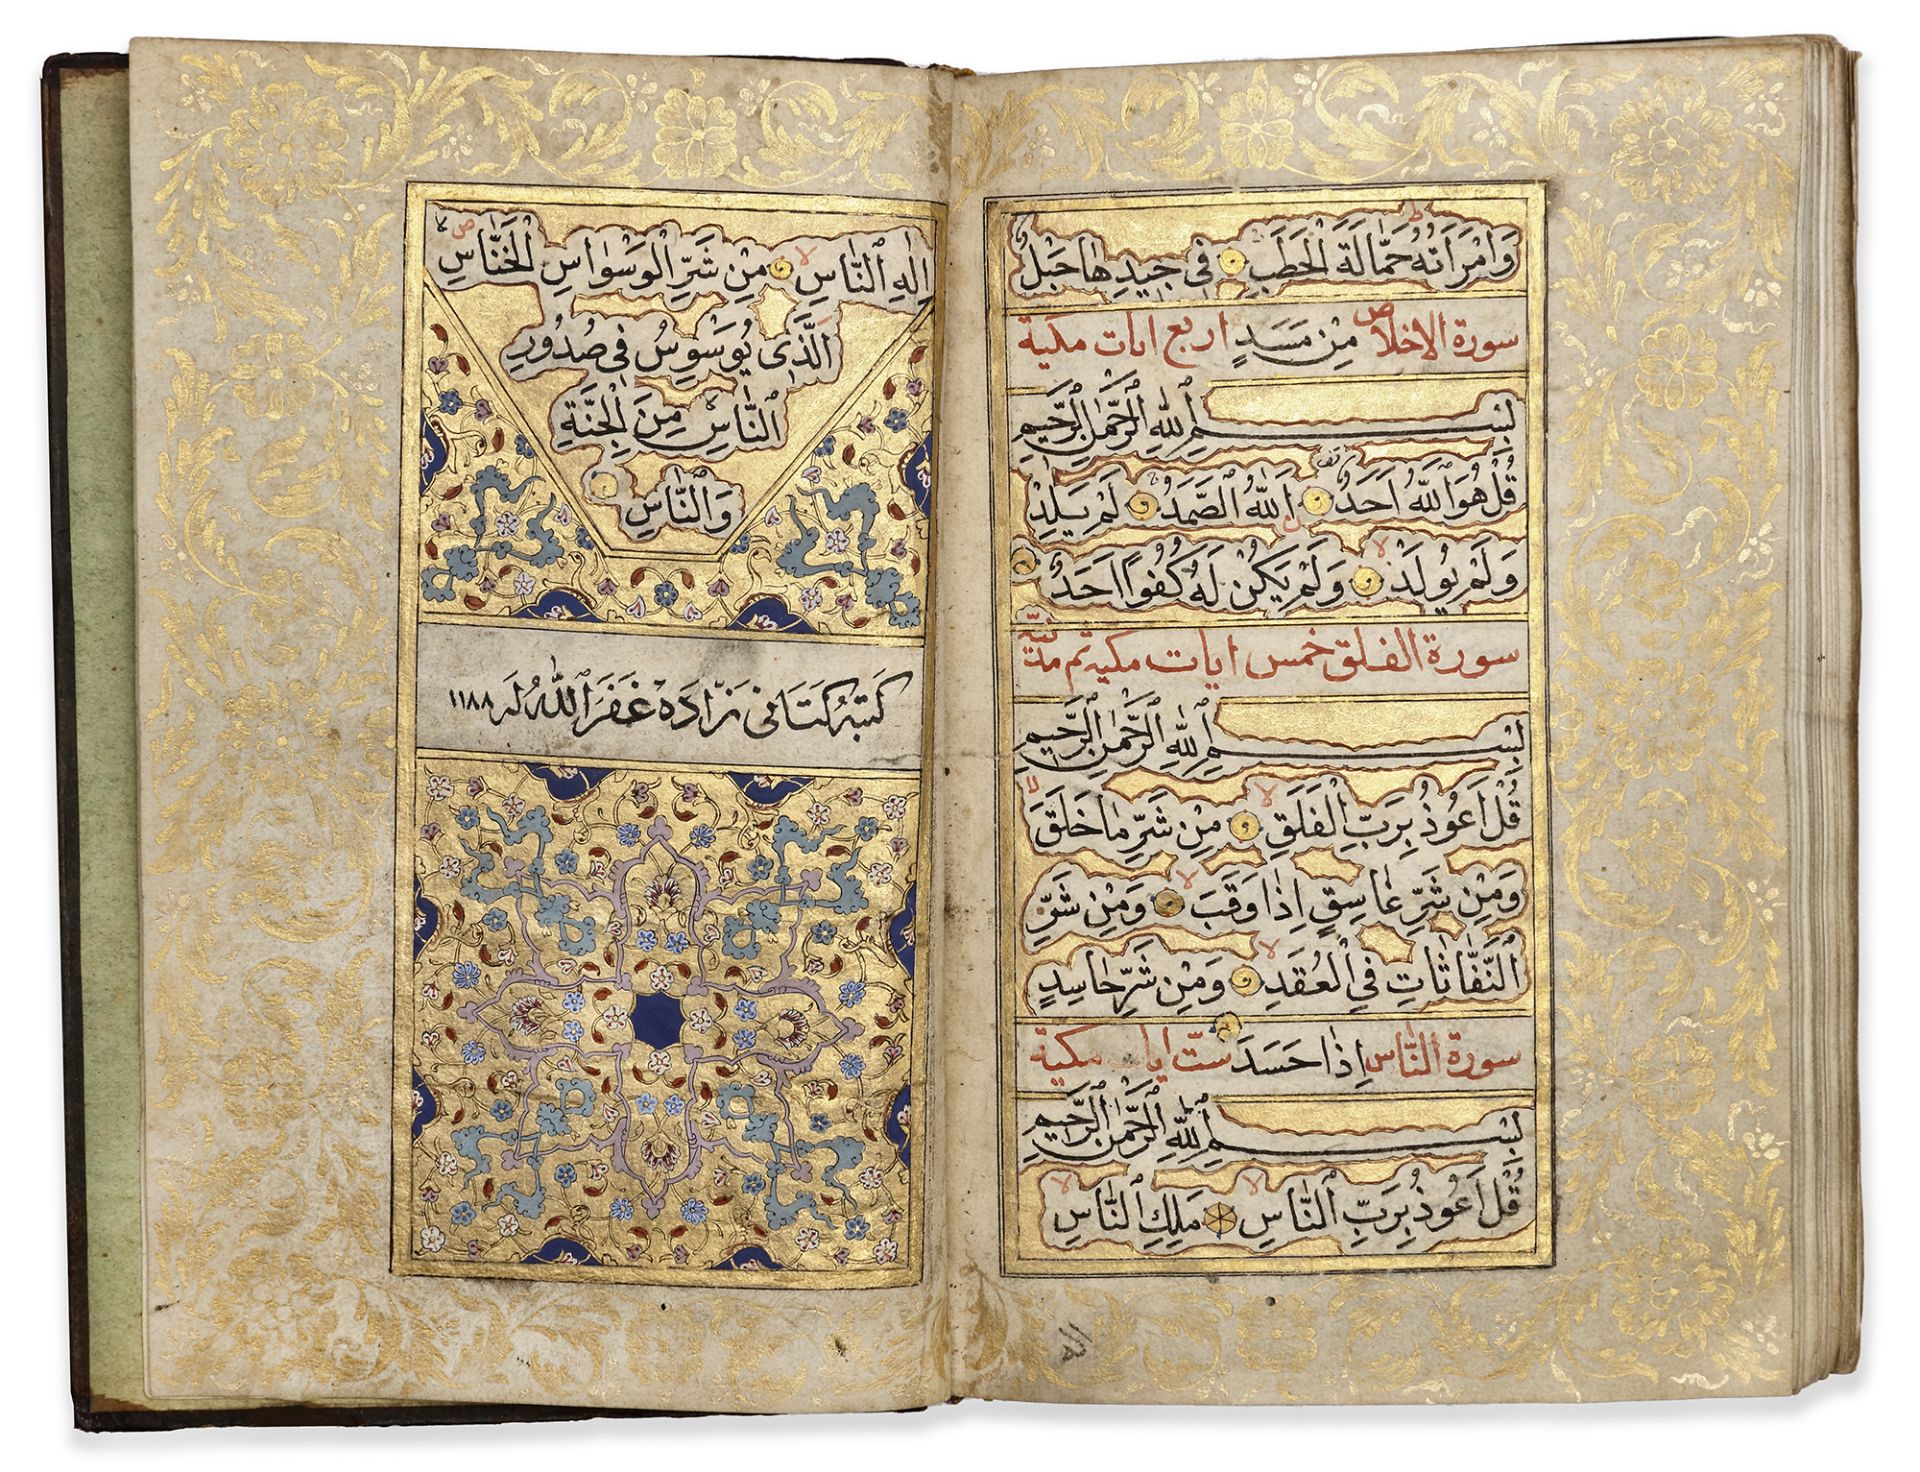 وَامْرَاَتُهُ حَمَّالَةَ الْحَطَبِ فٖى جٖيدِهَا حَبْلٌ
سورة الاخلاص مِنْ مَسَدٍ اربع ايات مكية
بِسْمِ اللّٰهِ الرَّحْمٰنِ الرَّحٖيمِ
قُلْ هُوَ اللّٰهُ اَحَدٌ اَللّٰهُ الصَّمَدُ لَمْ يَلِدْ
وَلَمْ يُولَدْ وَلَمْ يَكُنْ لَهُ كُفُوًا اَحَدٌ
سورة الفلق خمس ايات مكية
بِسْمِ اللّٰهِ الرَّحْمٰنِ الرَّحٖيمِ
قُلْ اَعُوذُ بِرَبِّ الْفَلَقِ مِنْ شَرِّ مَا خَلَقَ
وَمِنْ شَرِّ غَاسِقٍ اِذَا وَقَبَ وَمِنْ شَرِّ
النَّفَّاثَاتِ فِى الْعُقَدِ وَمِنْ شَرِّ حَاسِدٍ
سورة النّاس اِذَا حَسَدَ ستّ ايات مكية
بِسْمِ اللّٰهِ الرَّحْمٰنِ الرَّحٖيمِ
قُلْ اَعُوذُ بِرَبِّ النَّاسِ مَلِكِ النَّاسِ
اِلٰهِ النَّاسِ مِنْ شَرِّ الْوَسْوَاسِ الْخَنَّاسِ
اَلَّذٖى يُوَسْوِسُ فٖى صُدُورِ
النَّاسِ مِنَ الْجِنَّةِ
وَالنَّاسِ
كَتَبَهُ كتانى زاده غَفَرَ اللّٰهُ لَهُ ١١٨٨